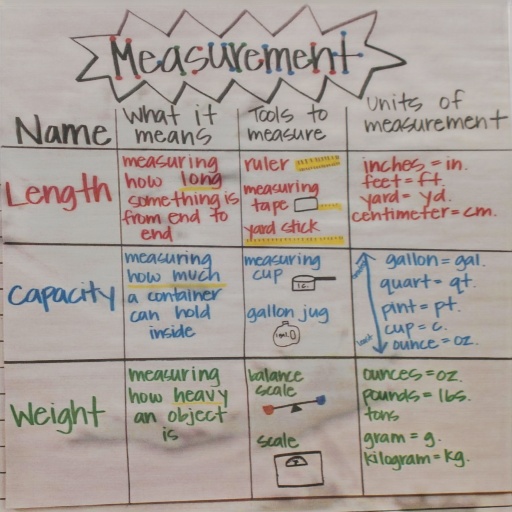 Measurement
Name
What it
means
Tools to
measure
Units of
measurement
Length
measuring
how long
something is
from end to
end
ruler
measuring
tape
yard stick
inches = in.
feet = ft.
yard = yd.
centimeter = cm.
Capacity
measuring
how much
a container
can hold
inside
measuring
cup
1 c.
gallon jug
gallon = gal.
quart = qt.
pint = pt.
cup = c.
ounce = oz.
Weight
measuring
how heavy
an object
is
balance
scale
scale
ounces = oz.
pounds = lbs.
tons
gram = g.
kilogram = kg.